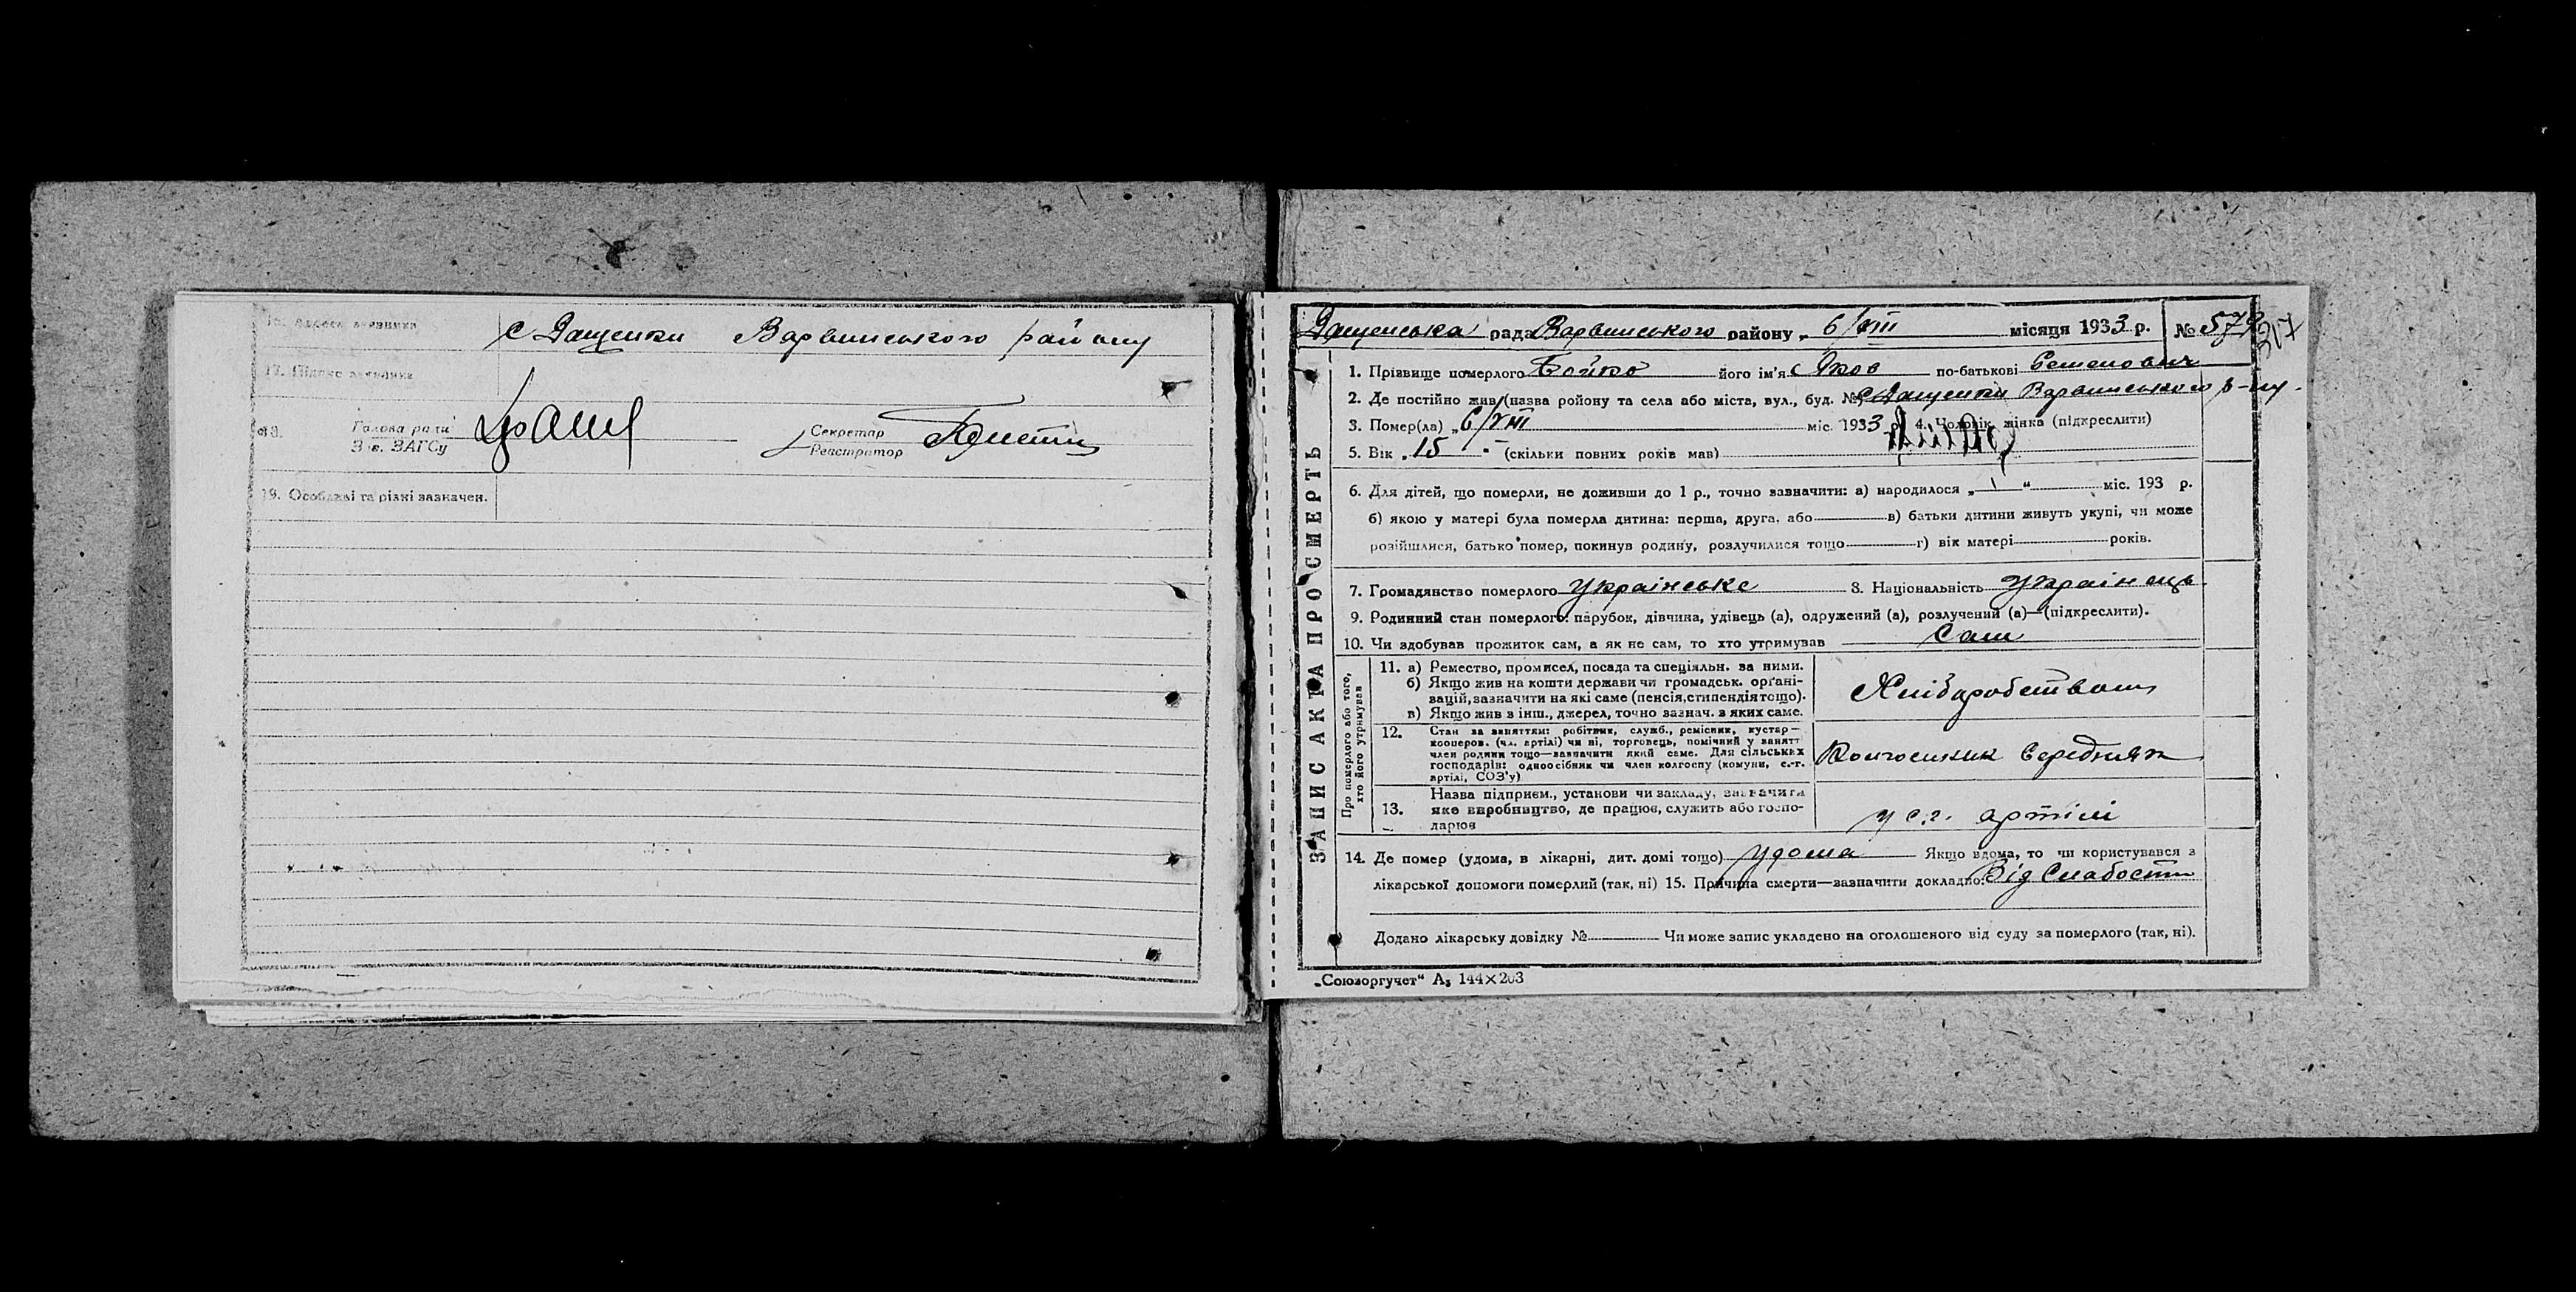 16. Адреса заявника с Дащенки Варвинського району
17. Підпис заявника
18. Голова ради
Зав. ЗАГСу
Секретар
Реєстратор
19. Особливі та різні зазначен.
Дащенська рада Варвинського району „ 6/VIII місяця 1933 р. № 579
317
ЗАПИС АКТА ПРО СМЕРТЬ
1. Прізвище померлого Бойко його ім'я Яков по-батькові Семенович
2. Де постійно жив (назва ройону та села або міста, вул., буд. №) с Дащенки Варвинського р-ну.
3. Помер(ла) „ 6/VIII міс. 1933 р. 4. Чоловік, жінка (підкреслити)
5. Вік „ 15 " (скільки повних років мав)
6. Для дітей, що померли, не доживши до 1 р., точно зазначити: а) народилося „ “ міс. 193 р.
б) якою у матері була померла дитина: перша, друга, або в) батьки дитини живуть укупі, чи може
розійшлися, батько помер, покинув родину, розлучилися тощо г) вік матері років.
7. Громадянство померлого українське 8. Національність українець
9. Родинний стан померлого: парубок, дівчина, удівець (а), одружений (а), розлучений (а)—(підкреслити).
10. Чи здобував прожиток сам, а як не сам, то хто утримував Сам
Про померлого або того,
хто його утримував
11. а) Ремество, промисел, посада та спеціяльн. за ними.
б) Якщо жив на кошти держави чи громадськ. орґані-
зацій, зазначити на які саме (пенсія, стипендія тощо).
в) Якщо жив з інш., джерел, точно зазнач. з яких саме.
Хліборобством
12. Стан за заняттям: робітник, служб., ремісник, кустар—
кооперов. (чл. артілі) чи ні, торговець, помічний у занятт
член родини тощо—зазначити який саме. Для сільських
господарів: одноосібник чи член колгоспу (комуни, с.-г.
артілі, СОЗ'у)
Колгоспник Середняк
13. Назва підприєм., установи чи закладу, зазначити
яке виробництво, де працює, служить або госпо-
дарює
у с.г. артілі
14. Де помер (удома, в лікарні, дит. домі тощо) удома Якщо вдома, то чи користувався з
лікарської допомоги померлий (так, ні) 15. Причина смерти—зазначити докладно: Від Слабости
Додано лікарську довідку № Чи може запис укладено на оголошеного від суду за померлого (так, ні).
„Союзоргучет“ А₅ 144×203